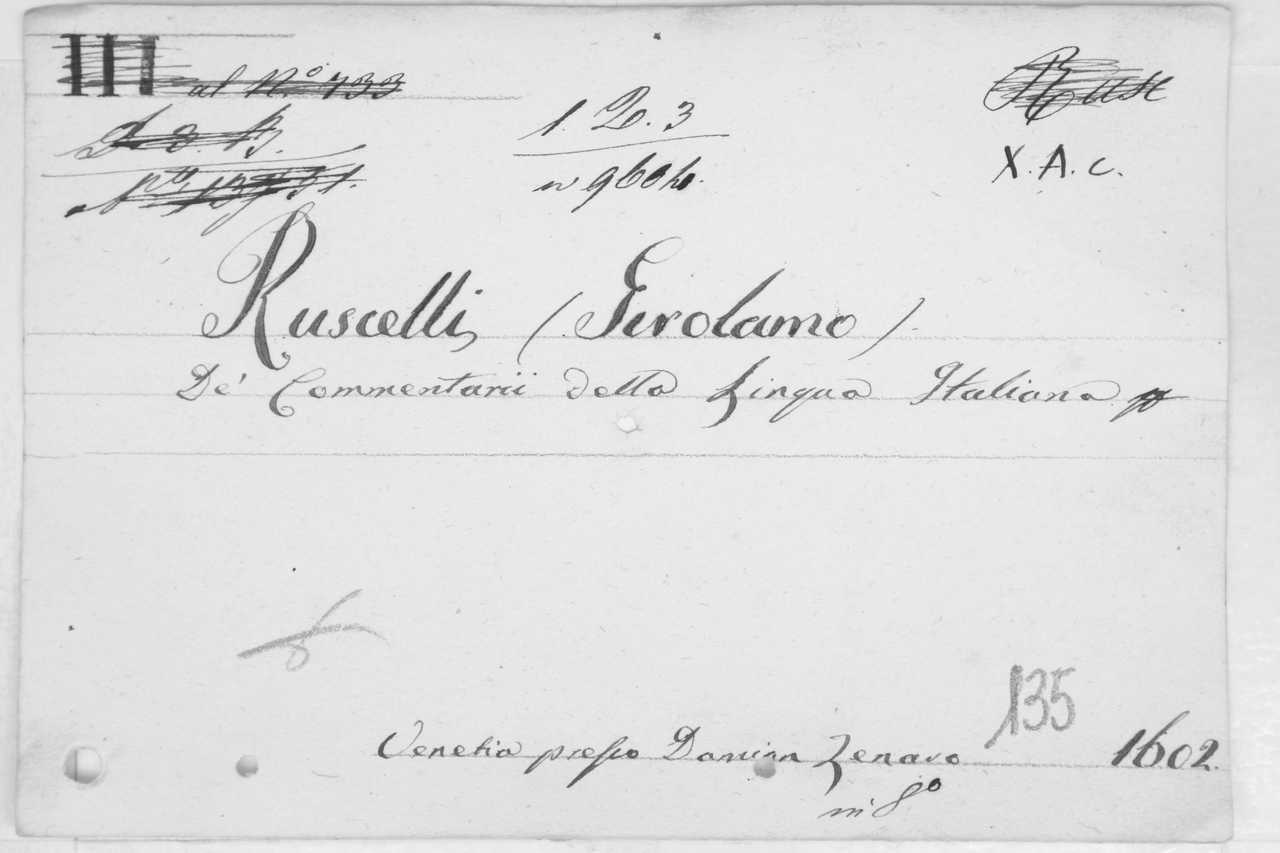 III al N° 733
1. D. 3
X. A. c.
Ruscelli, (Girolamo).
De' Commentarii della Lingua Italiana
135
Venetia presso Damian Zenaro 1602.
in 8°